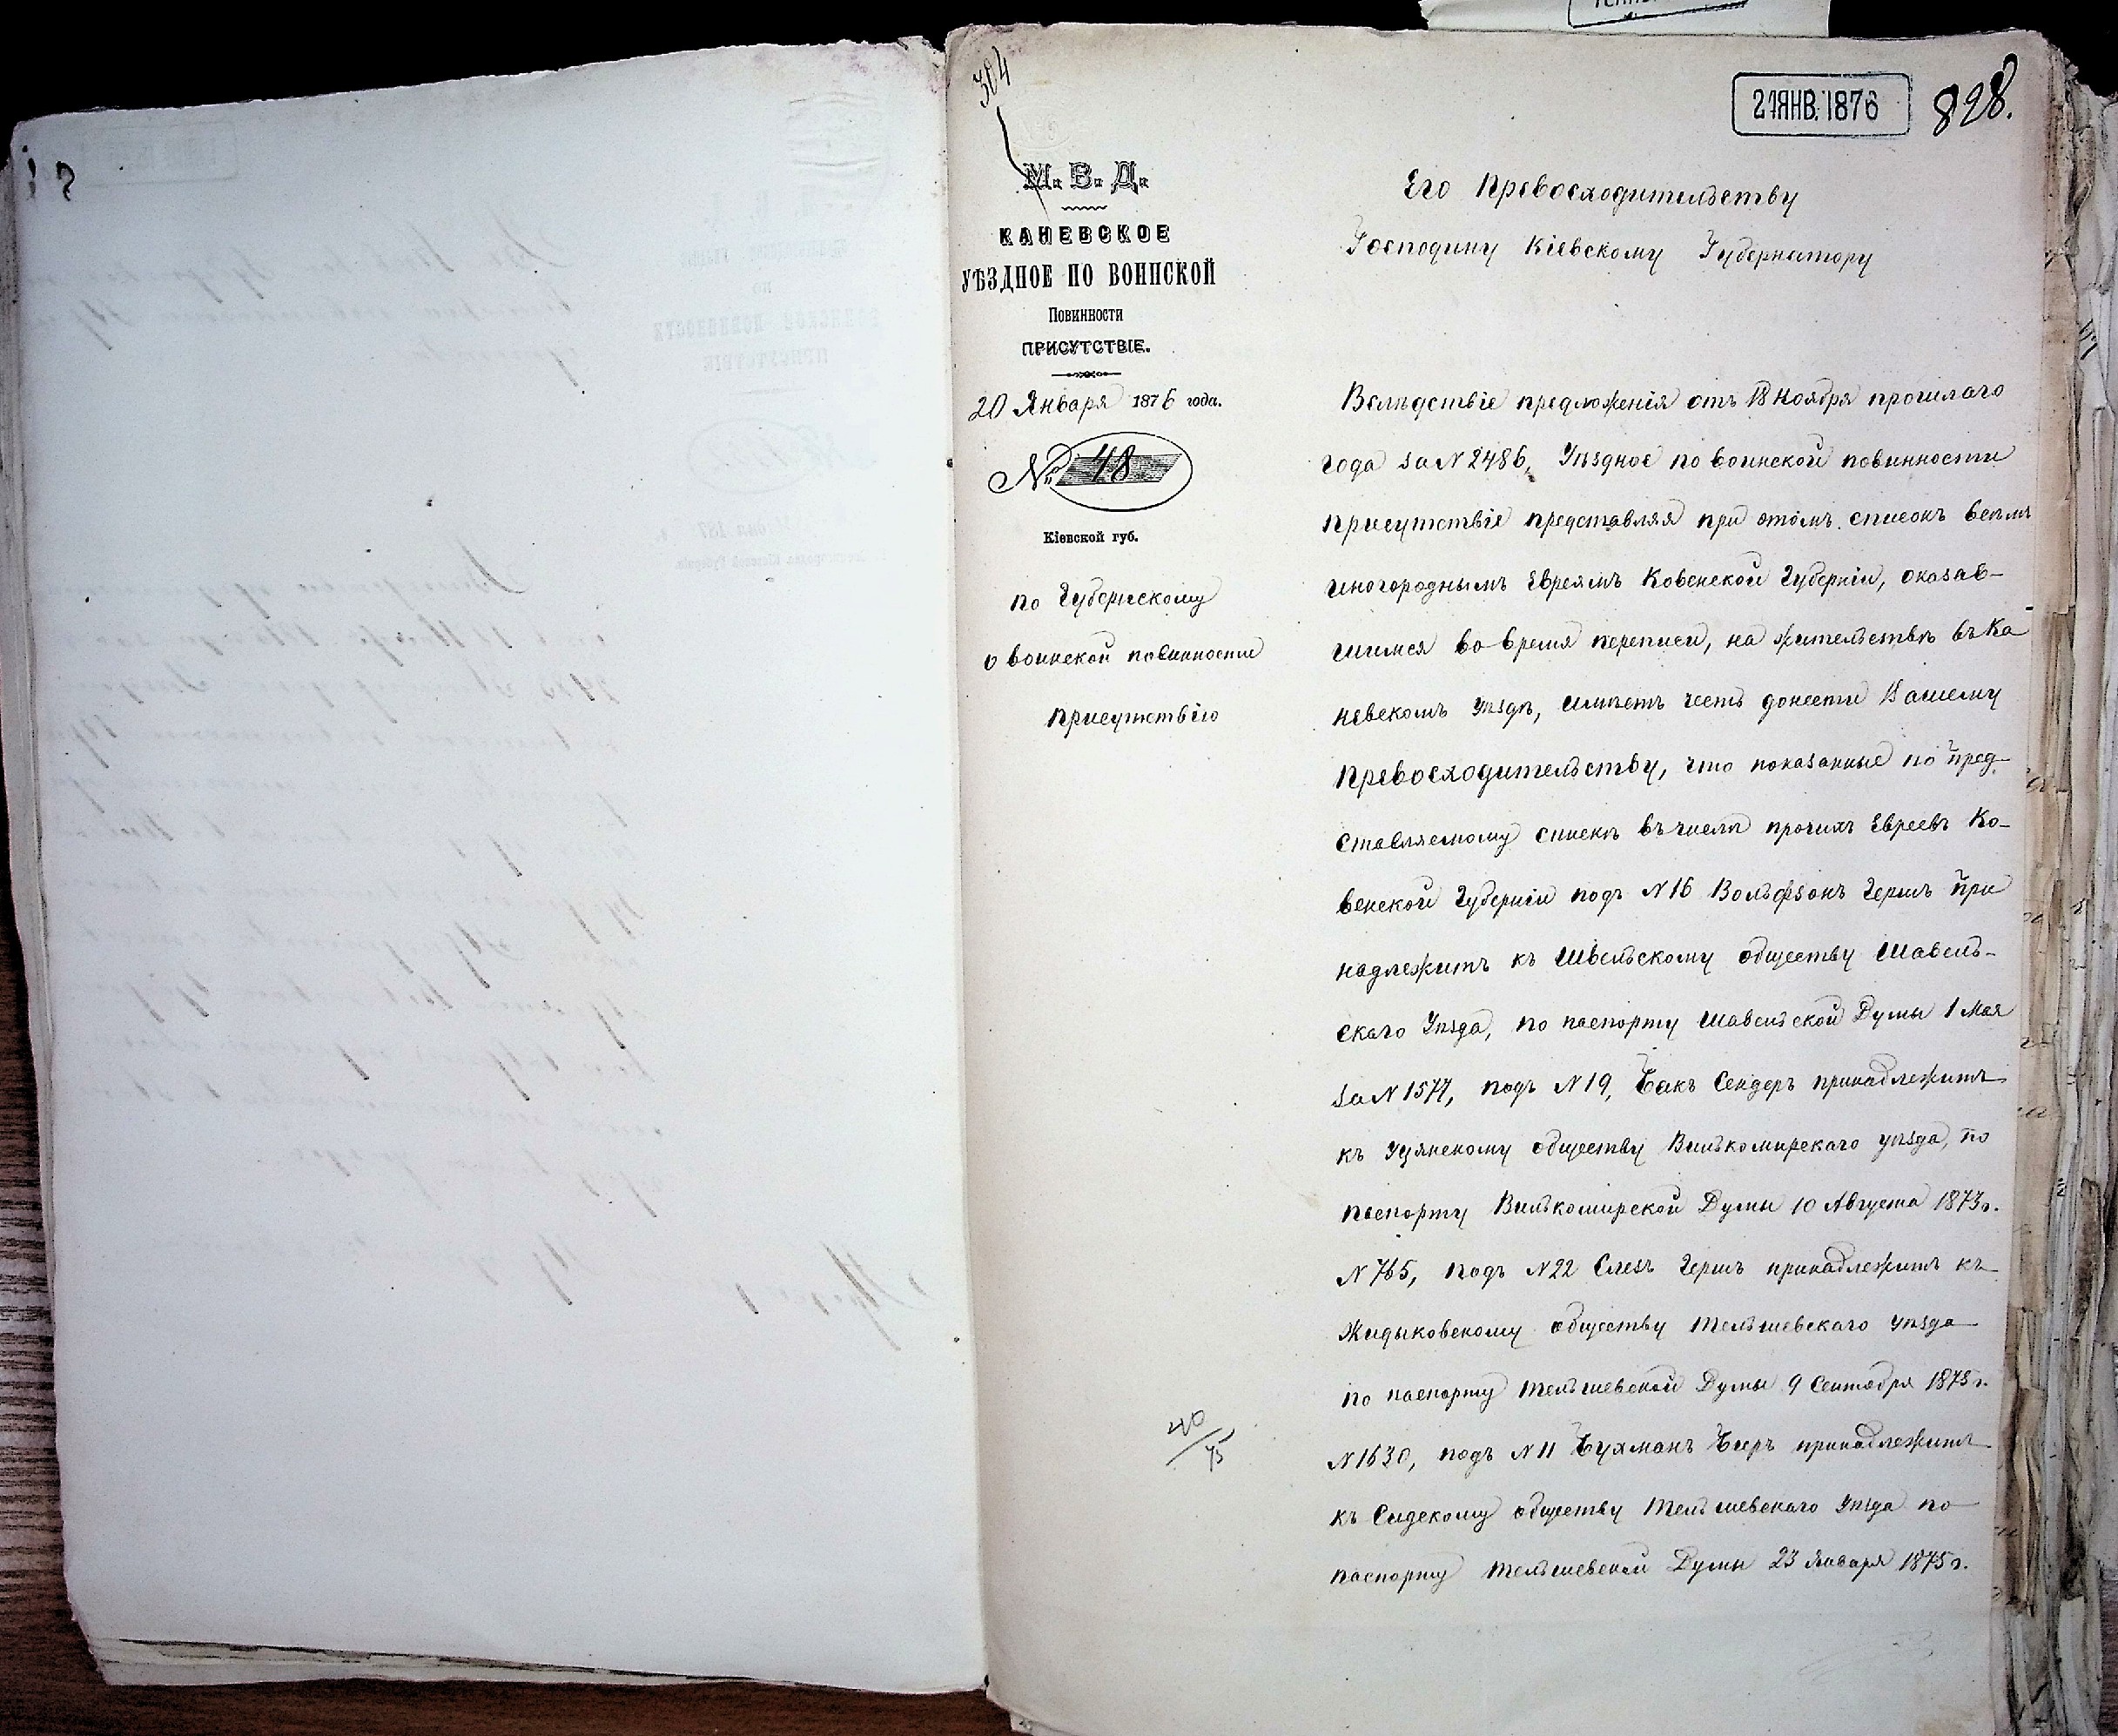 304
21 ЯНВ. 1876
828.
М. В. Д.
КАНЕВСКОЕ
УѢЗДНОЕ ПО ВОИНСКОЙ
Повинности
ПРИСУТСТВІЕ.
20 Января 1876 года.
№ 48
Кіевской губ.
по Губернскому
о воинской повинности
присутствію
40/75
Его Превосходительству
Господину Кіевскому Губернатору
Вслѣдствіе предложенія отъ 18 Ноября прошлаго
года за N 2486, Уѣздное по воинской повинности
присутствіе представляя при этомъ списокъ всѣмъ
иногороднымъ Евреямъ Ковенской Губерніи, оказав-
шимся во время переписи, на жительствѣ въ Ка
невскомъ уѣздѣ, имѣетъ честь донести Вашему
Превосходительству, что показанные по пред-
ставляемому списку въ числѣ прочихъ Евреевъ Ко-
венской Губерніи подъ N 16 Вольфзонъ Гершъ при
надлежитъ къ Швельскому обществу Шавель-
скаго Уѣзда, по паспорту Шавельской Думы 1 Мая
за N 1577, подъ N 19, Бакъ Сендеръ принадлежитъ
къ Уцянскому обществу Вилькомирскаго уѣзда, по
паспорту Вилькомирской Думы 10 Августа 1873 г.
N 765, подъ N 22 Слезъ Гершъ принадлежитъ къ
Жидыковскому обществу Тельшевскаго уѣзда
по паспорту Тельшевской Думы 9 Сентября 1875 г.
N 1630, подъ N 11 Бухманъ Беръ принадлежитъ
къ Сидскому обществу Тельшевскаго Уѣзда по
паспорту Тельшевской Думы 23 Января 1875 г.